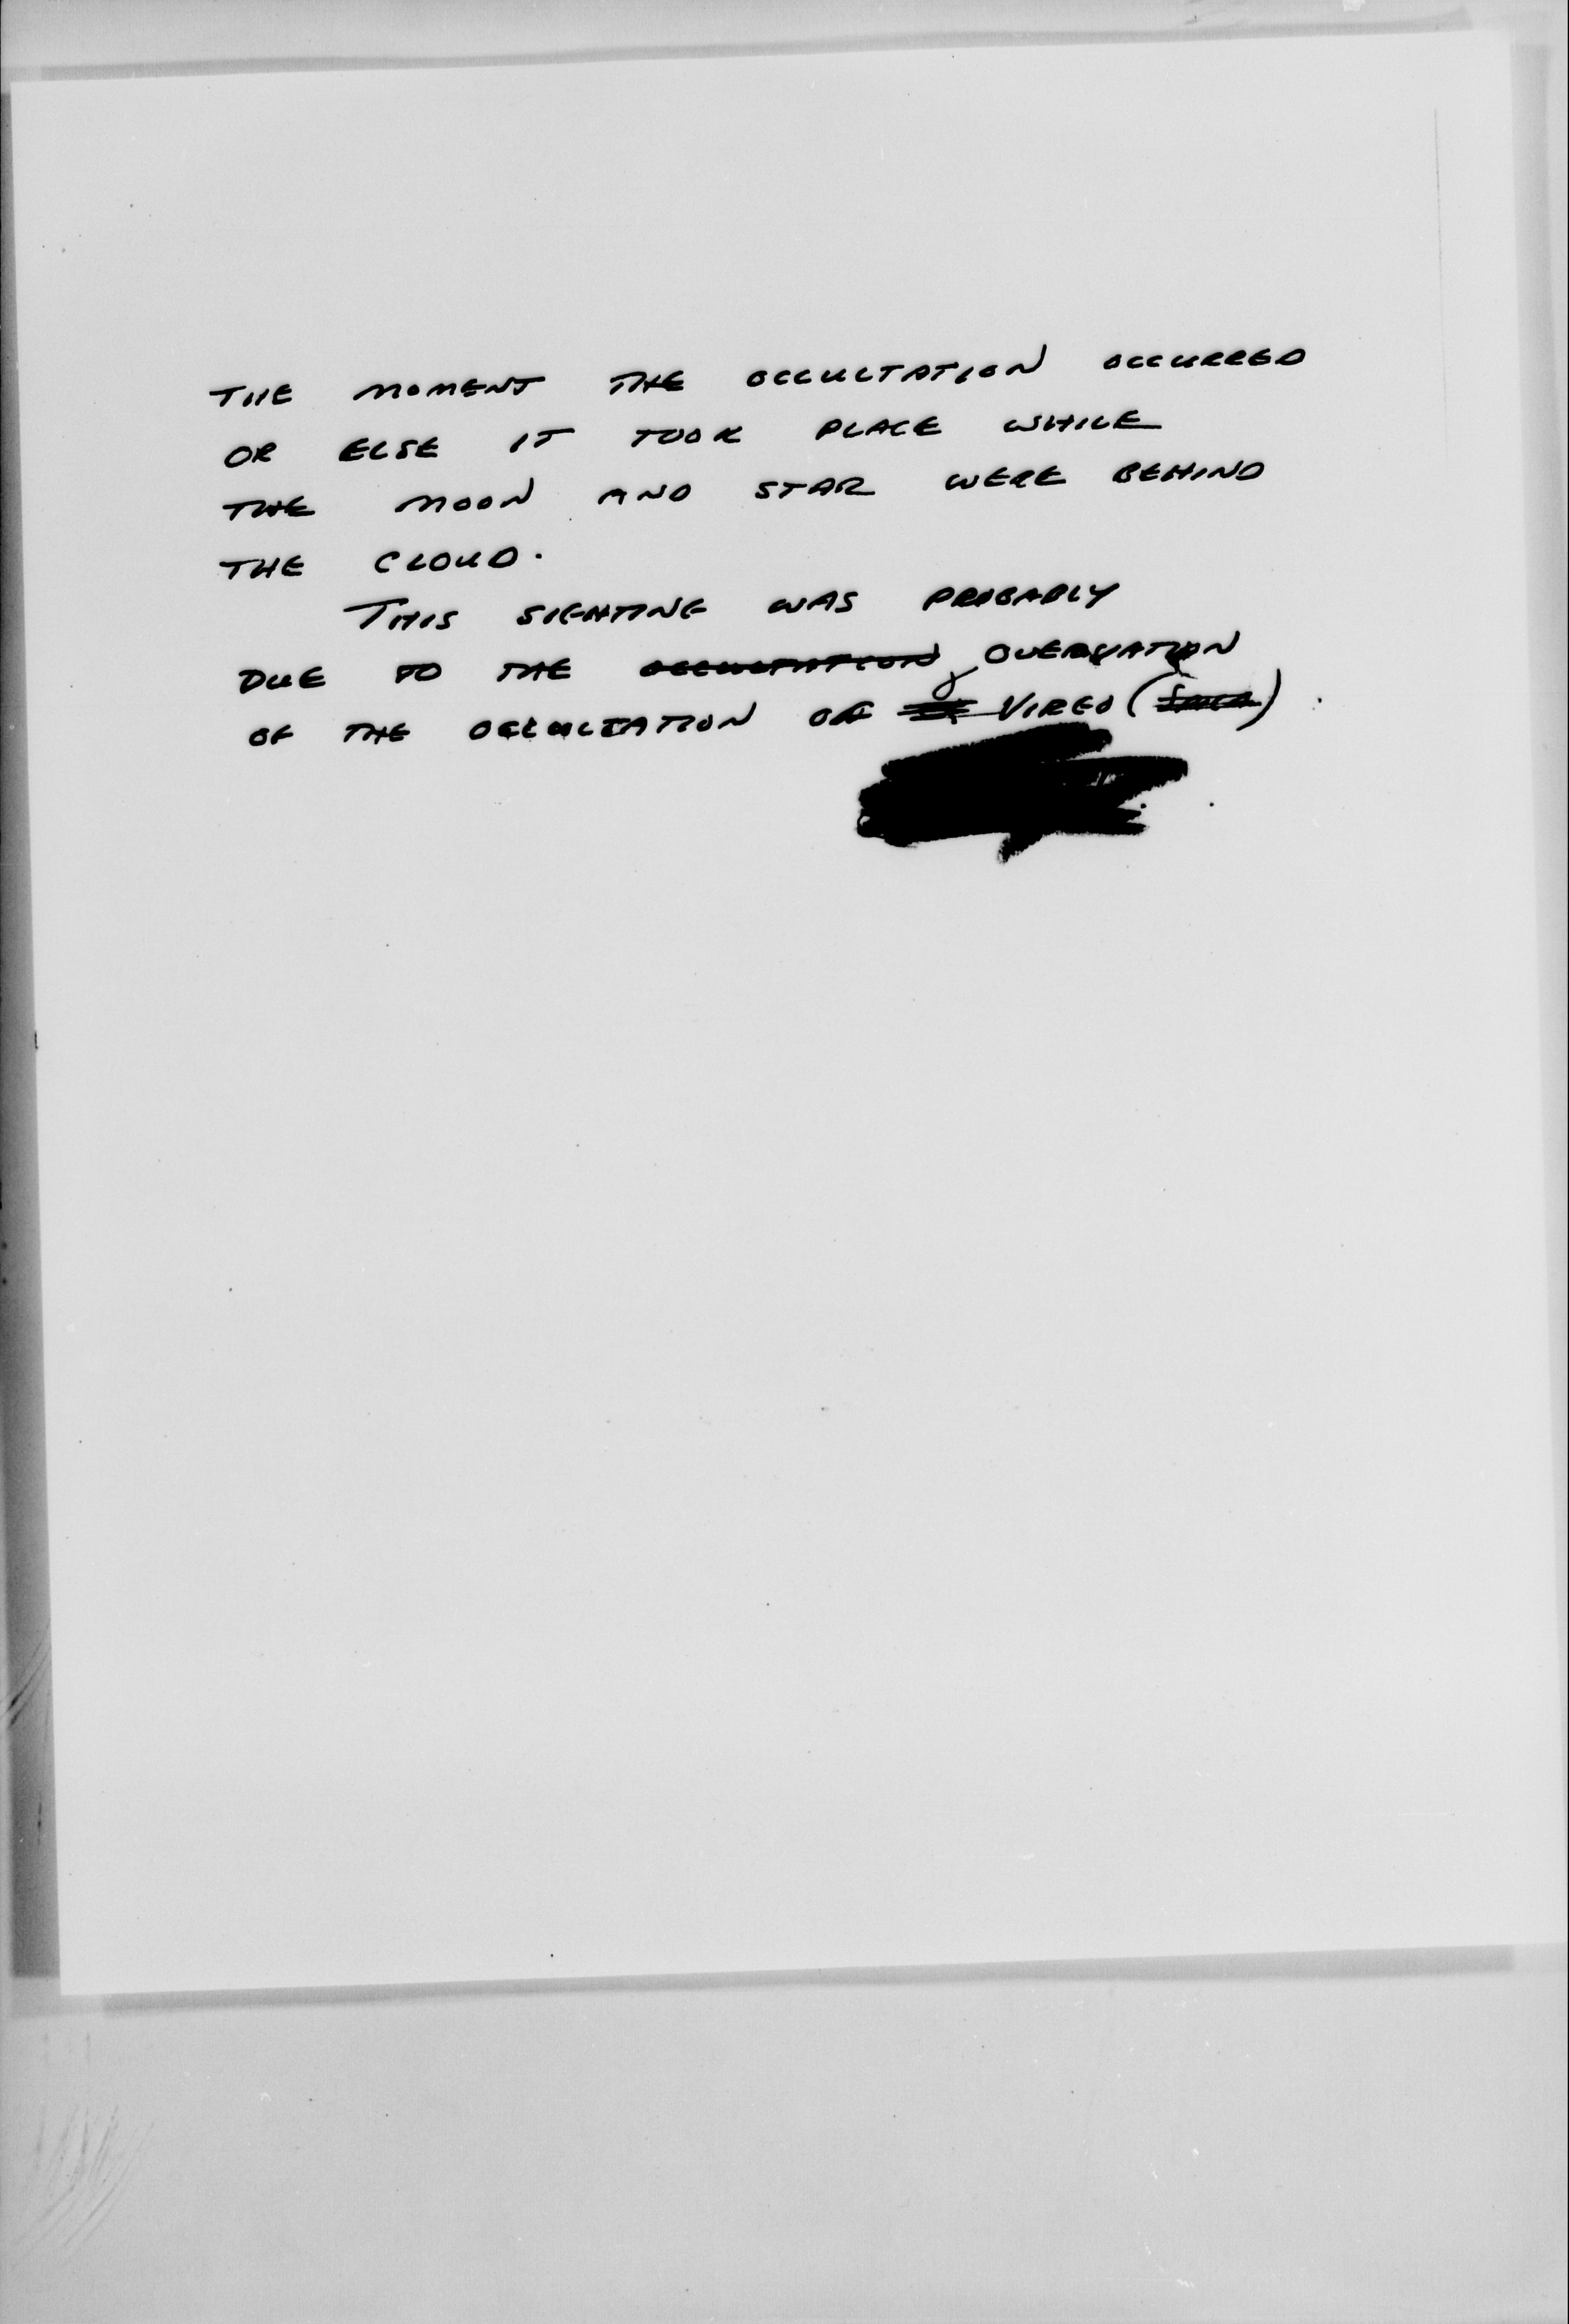 THE MOMENT THE OCCULTATION OCCURRED
OR ELSE IT TOOK PLACE WHILE
THE MOON AND STAR WERE BEHIND
THE CLOUD.
THIS SIGHTING WAS PROBABLY
DUE TO THE OCCULTATION
OF THE OCCULTATION OF VIRGO ( ).